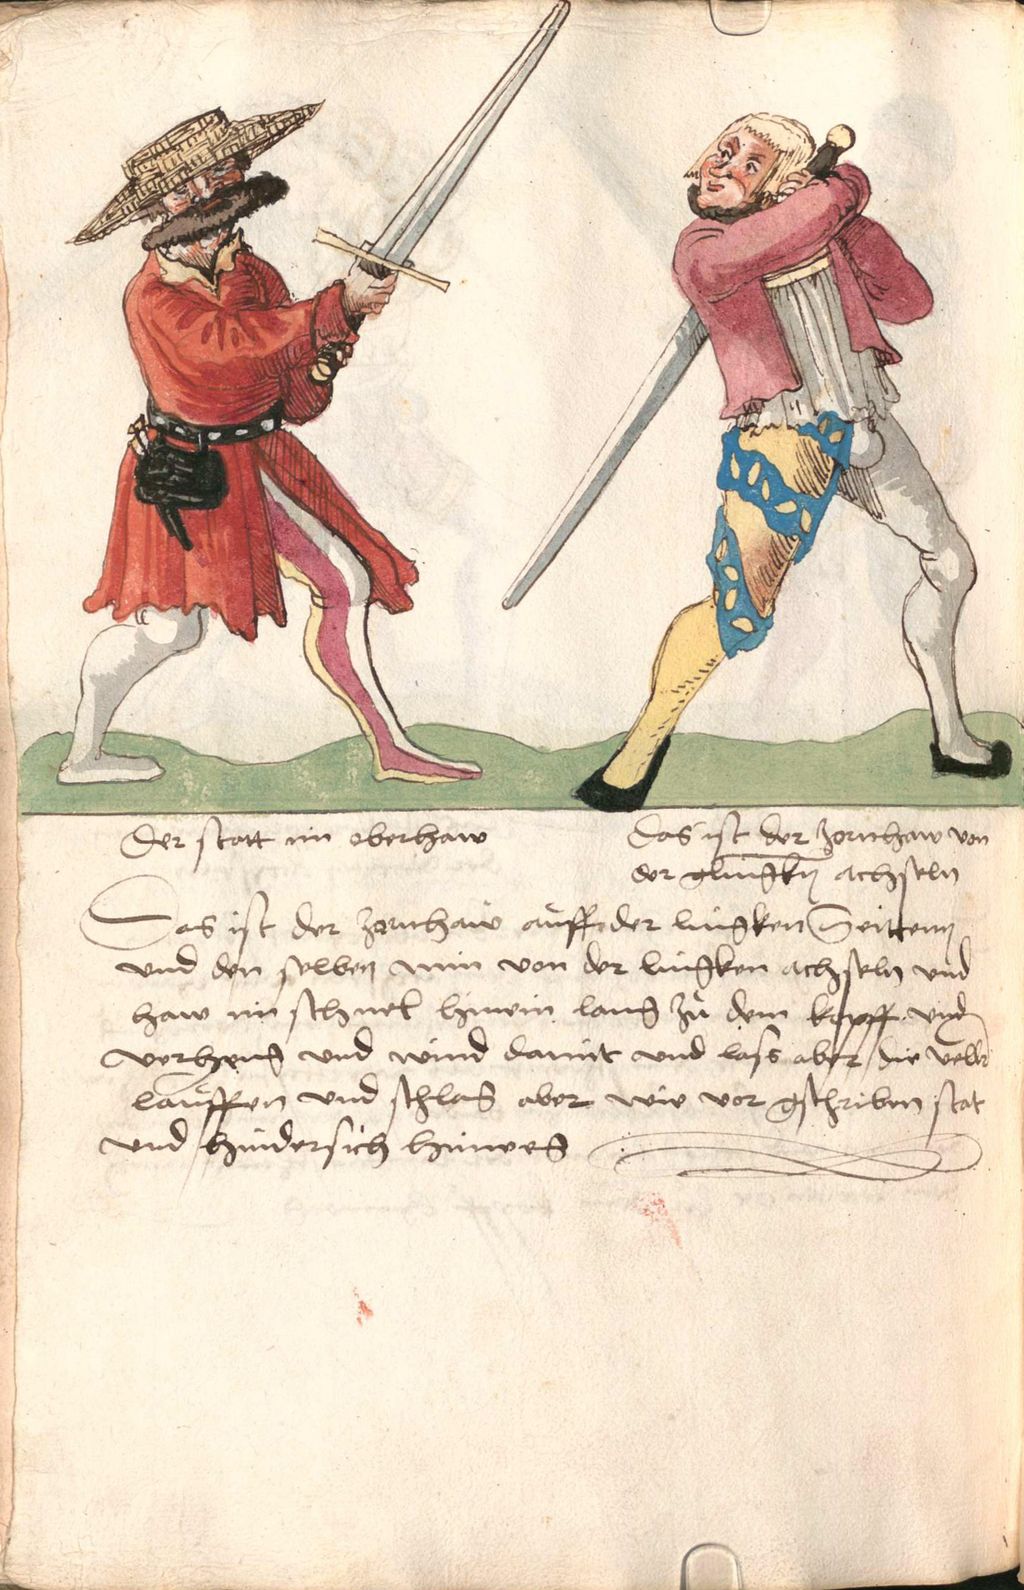 Der statt im oberhaw
Das ist der zornhaw von
der glingkn achseln
Das ist der zornhaw auff der lingken Seitten
und den selben nim von der lingken achseln und
haw im schnel hinein lang zu dem kopff und
verheng und wind damit und lass aber die veller
lauffen und schlag aber wie vor gschriben stat
und hindersich hinweg